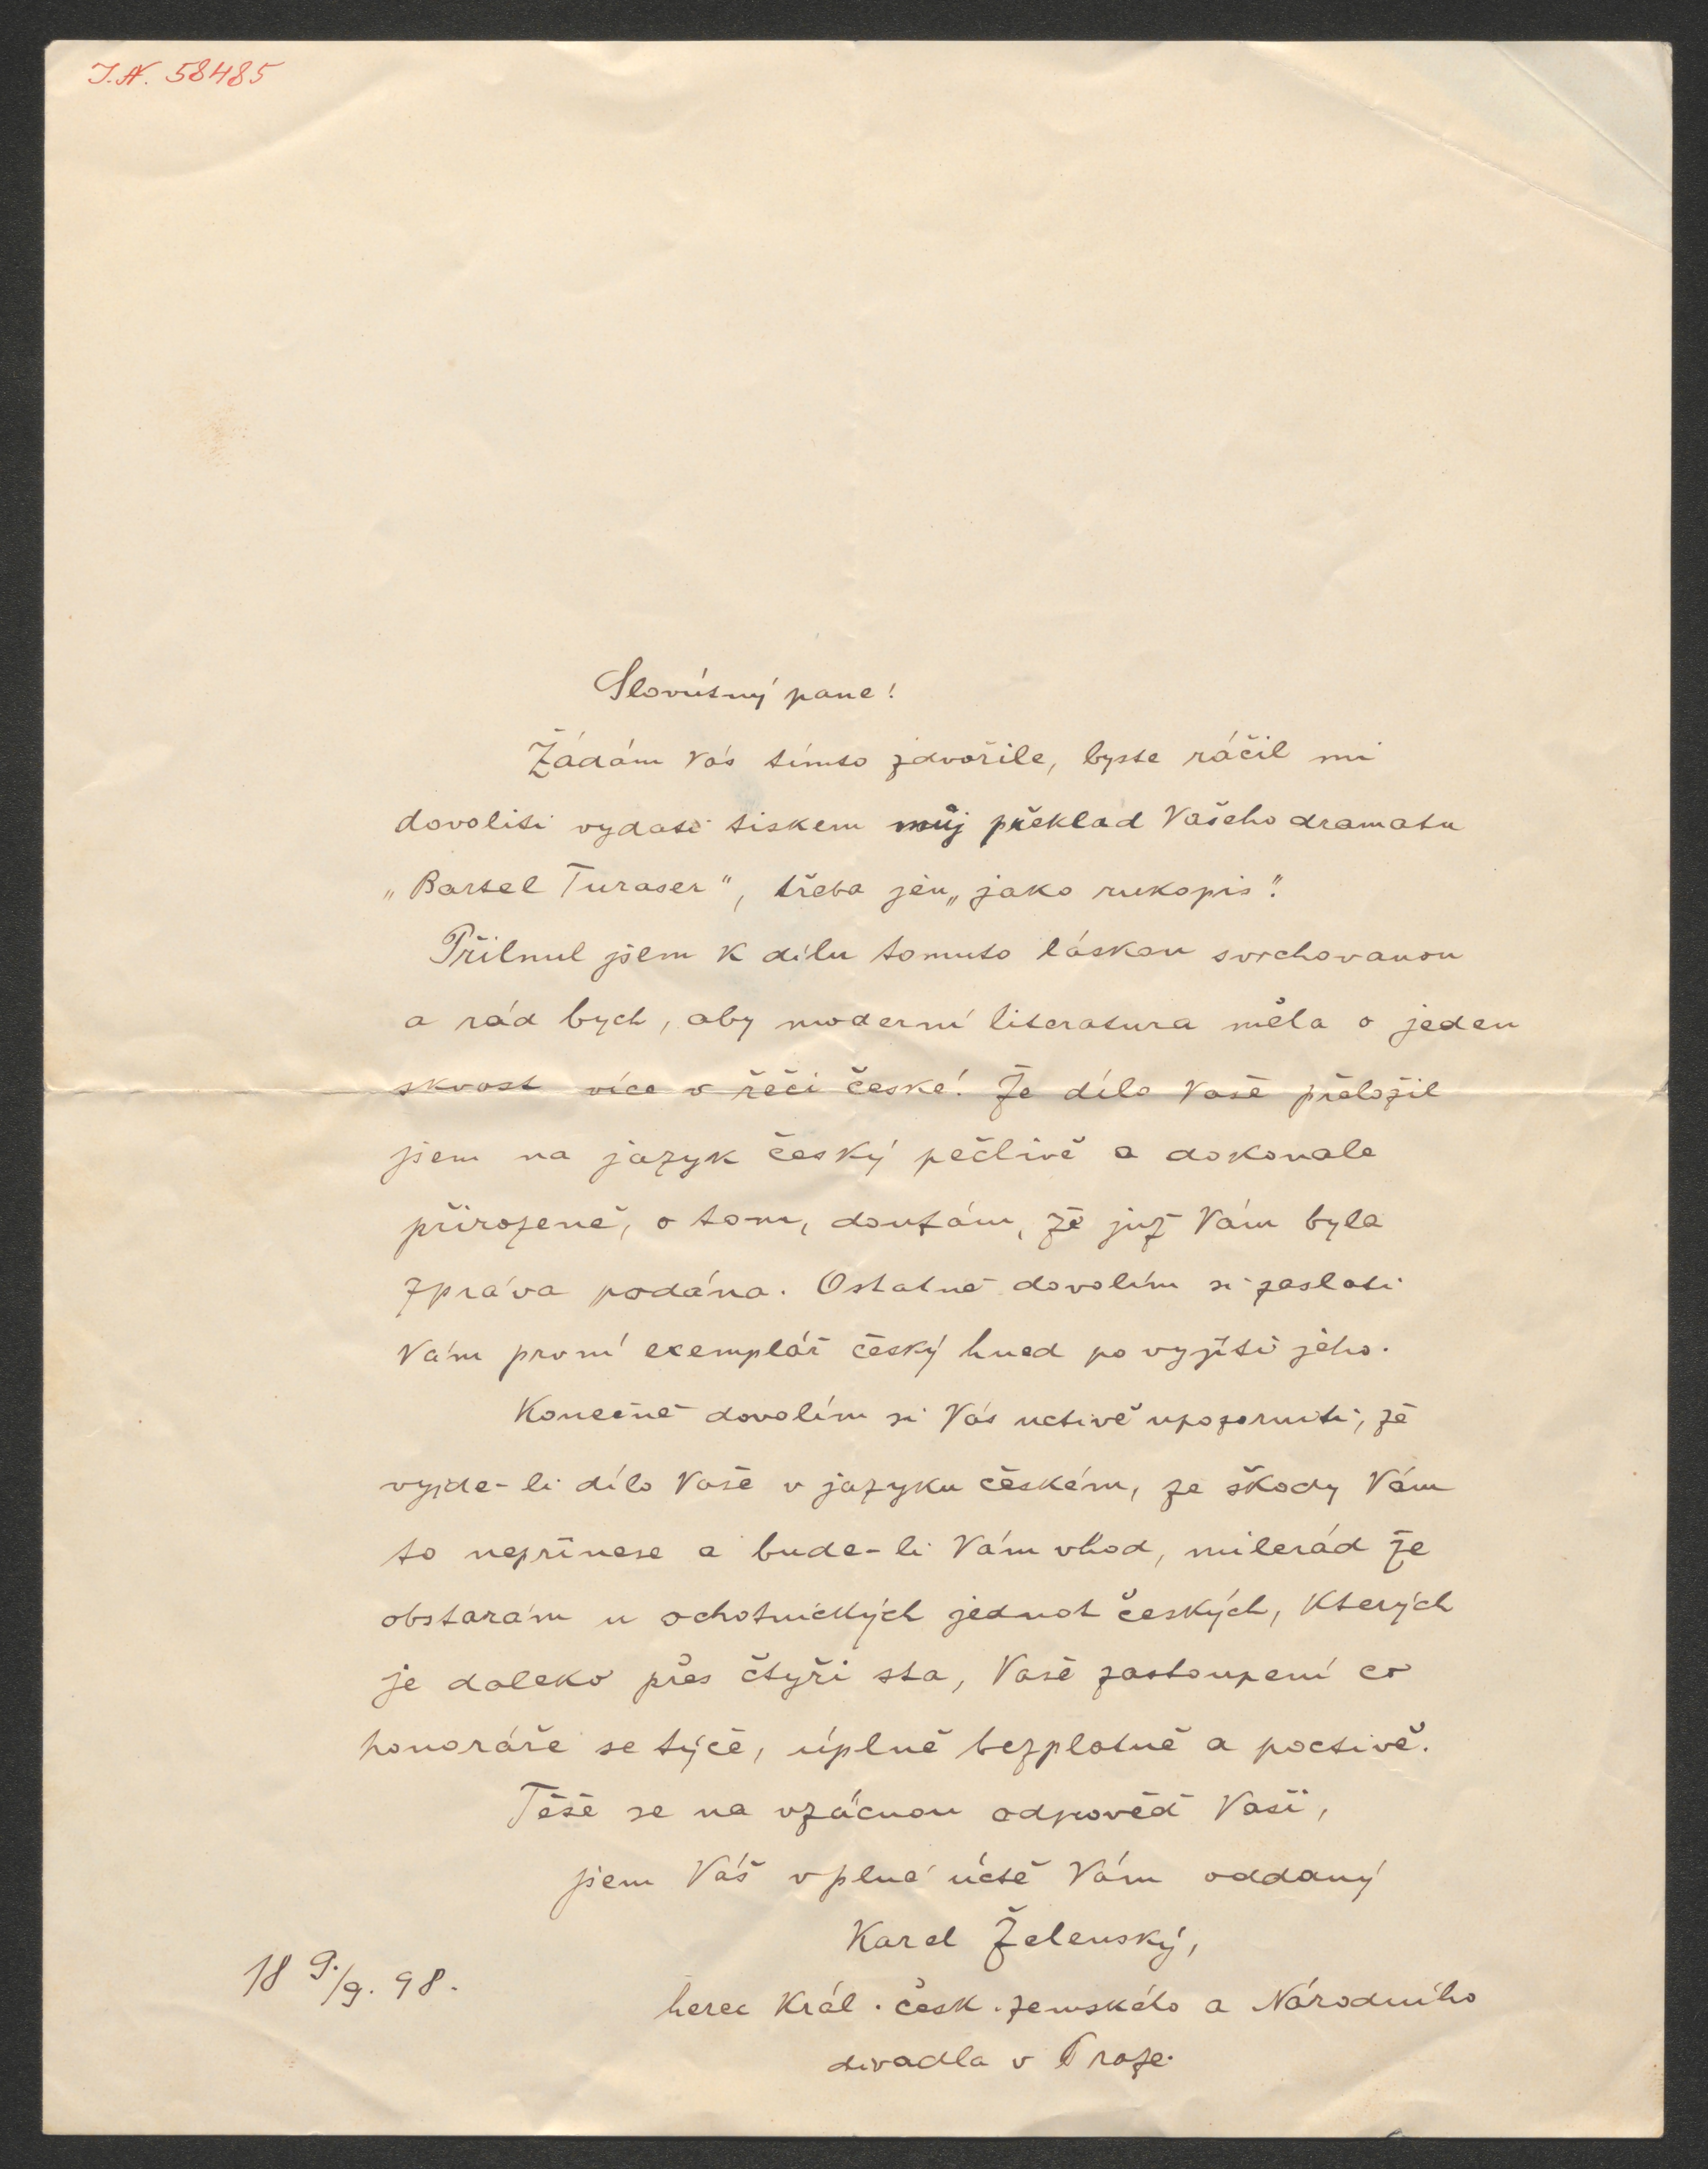 J.N. 58485
Slovútný pane!
Žádám Vás tímto zdvořile, byste ráčil mi
dovoliti vydati tiskem můj překlad Vašeho dramatu
„Bartel Turaser“, třeba jen „jako rukopis“.
Přilnul jsem k dílu tomuto láskou svrchovanou
a rád bych, aby moderní literatura měla o jeden
skvost více v řeči české! Že dílo Vaše přeložil
jsem na jazyk český pečlivě a dokonale
přirozeně, o tom, doufám, že již Vám byla
zpráva podána. Ostatně dovolím si zaslati
Vám první exemplář český hned po vyjití jeho.
Konečně dovolím si Vás uctivě upozorniti, že
vyjde-li dílo Vaše v jazyku českém, že škody Vám
to nepřinese a bude-li Vám vhod, milerád že
obstarám u ochotnických jednot českých, kterých
je daleko přes čtyři sta, Vaše zastoupení co
honoráře se týče, úplně bezplatně a poctivě.
Těše se na vzácnou odpověď Vaši,
jsem Váš v plné úctě Vám oddaný
Karel Želenský,
18 9./9. 98.
herec král. česk. zemského a Národního
divadla v Praze.